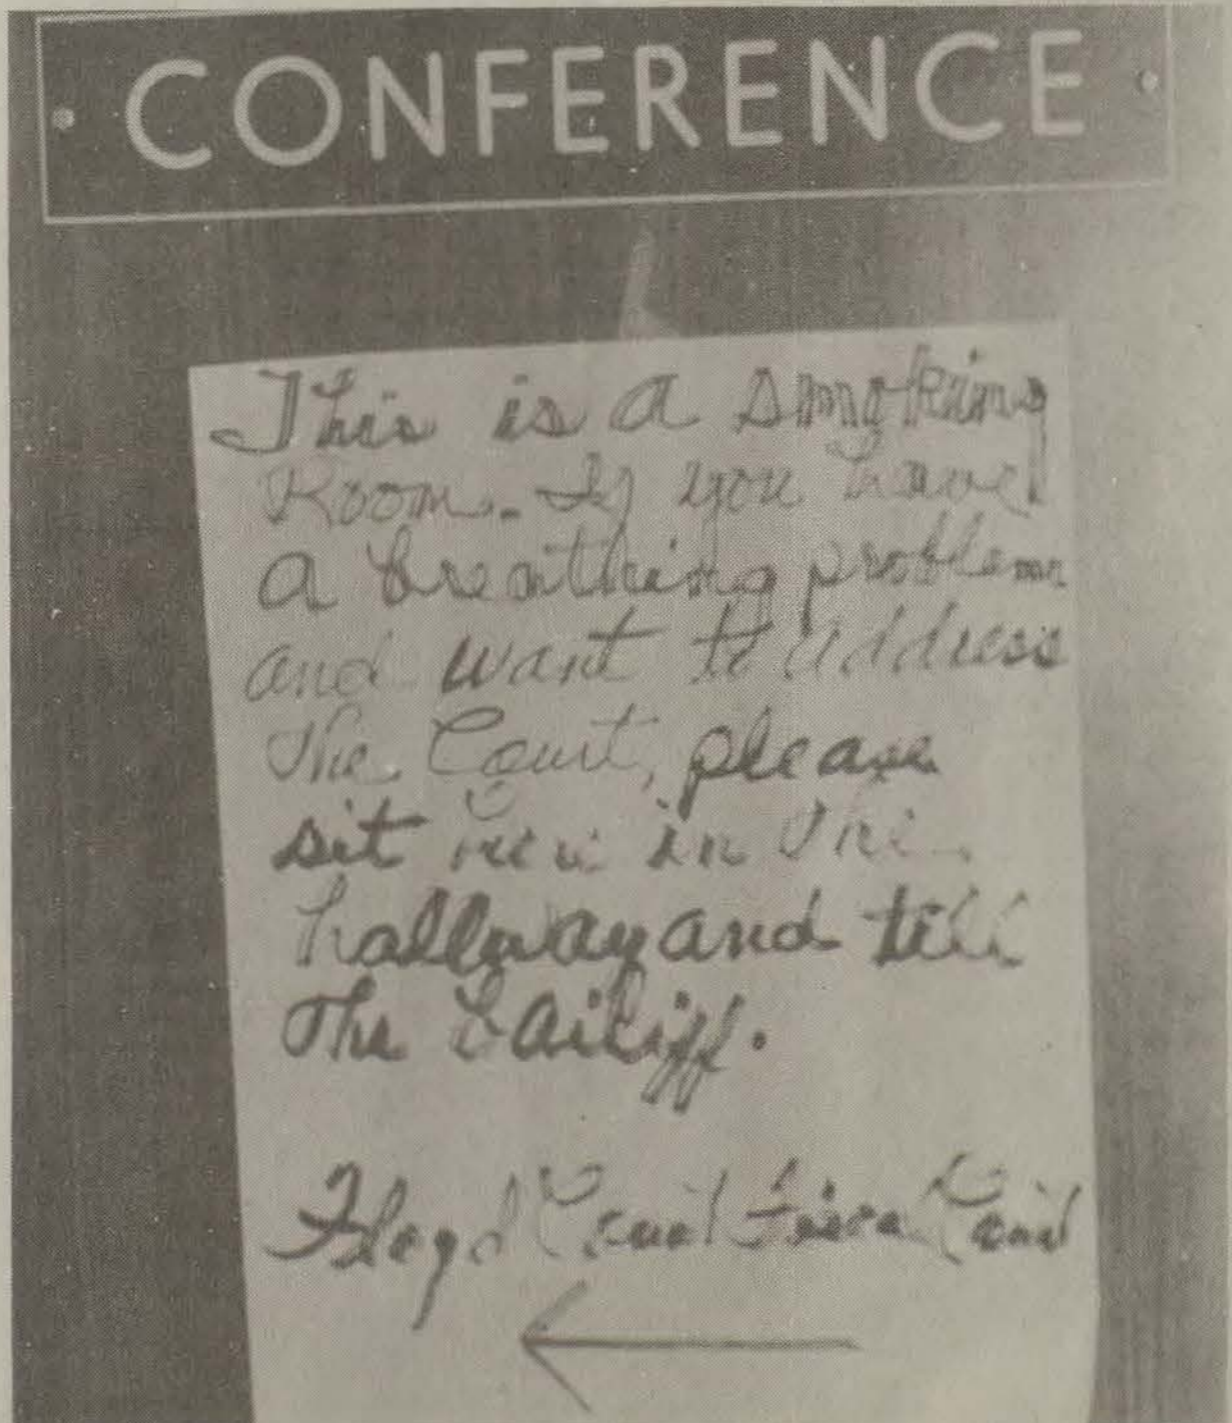 CONFERENCE
This is a smoking
Room. If you have
a breathing problem
and want to address
the Court, please
sit here in the
hallway and tell
the bailiff.
Floyd